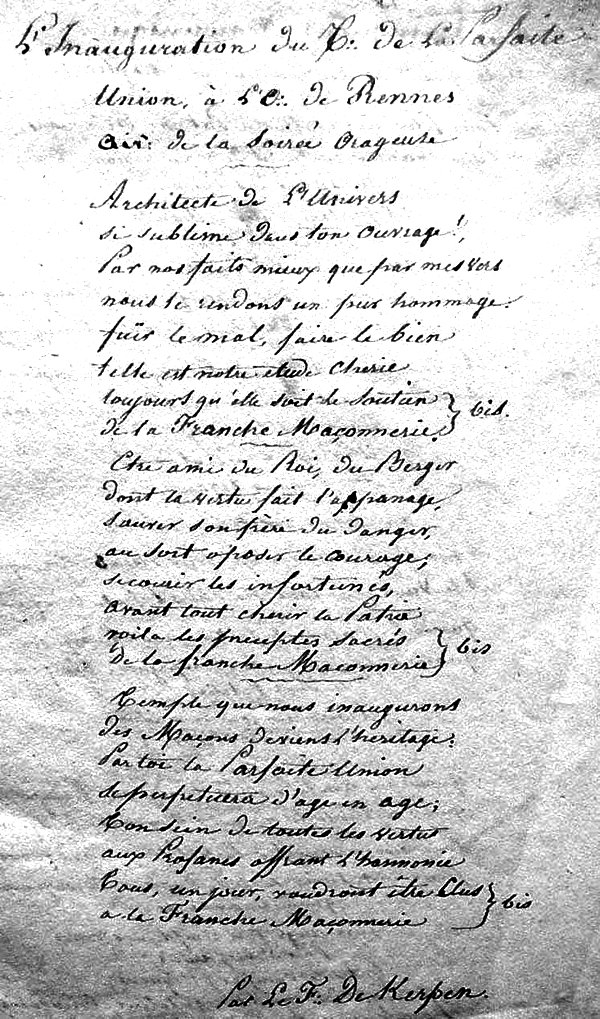 L'Inauguration du T∴ de L. Parfaite
Union, à L'O∴ de Rennes
air: de la soirée orageuse
Architecte de L'Univers
si sublime dans ton ouvrage!,
Par nos faits mieux que par mes vers
nous te rendons un pur hommage.
fuïr le mal, faire le bien
telle est notre étude cherie
toujours qu'elle soit le soutien
de la Franche Maçonnerie. } bis.
Etre ami du Roi, du Berger
dont la vertu fait l'appanage,
sauver son frère du danger,
au sort oposer le courage;
secourir les infortunés,
avant tout cherir la Patrie
voila les preceptes sacrés
de la franche Maçonnerie } bis
Temple que nous inaugurons
des Maçons deviens l'héritage:
Par toi la Parfaite Union
se perpetuera d'age en age;
Ton sein de toutes les vertus
aux Profanes offrant l'harmonie
Tous, un jour, voudront être Elus
a la Franche Maçonnerie } bis
Par Le F∴ De Kerpen.